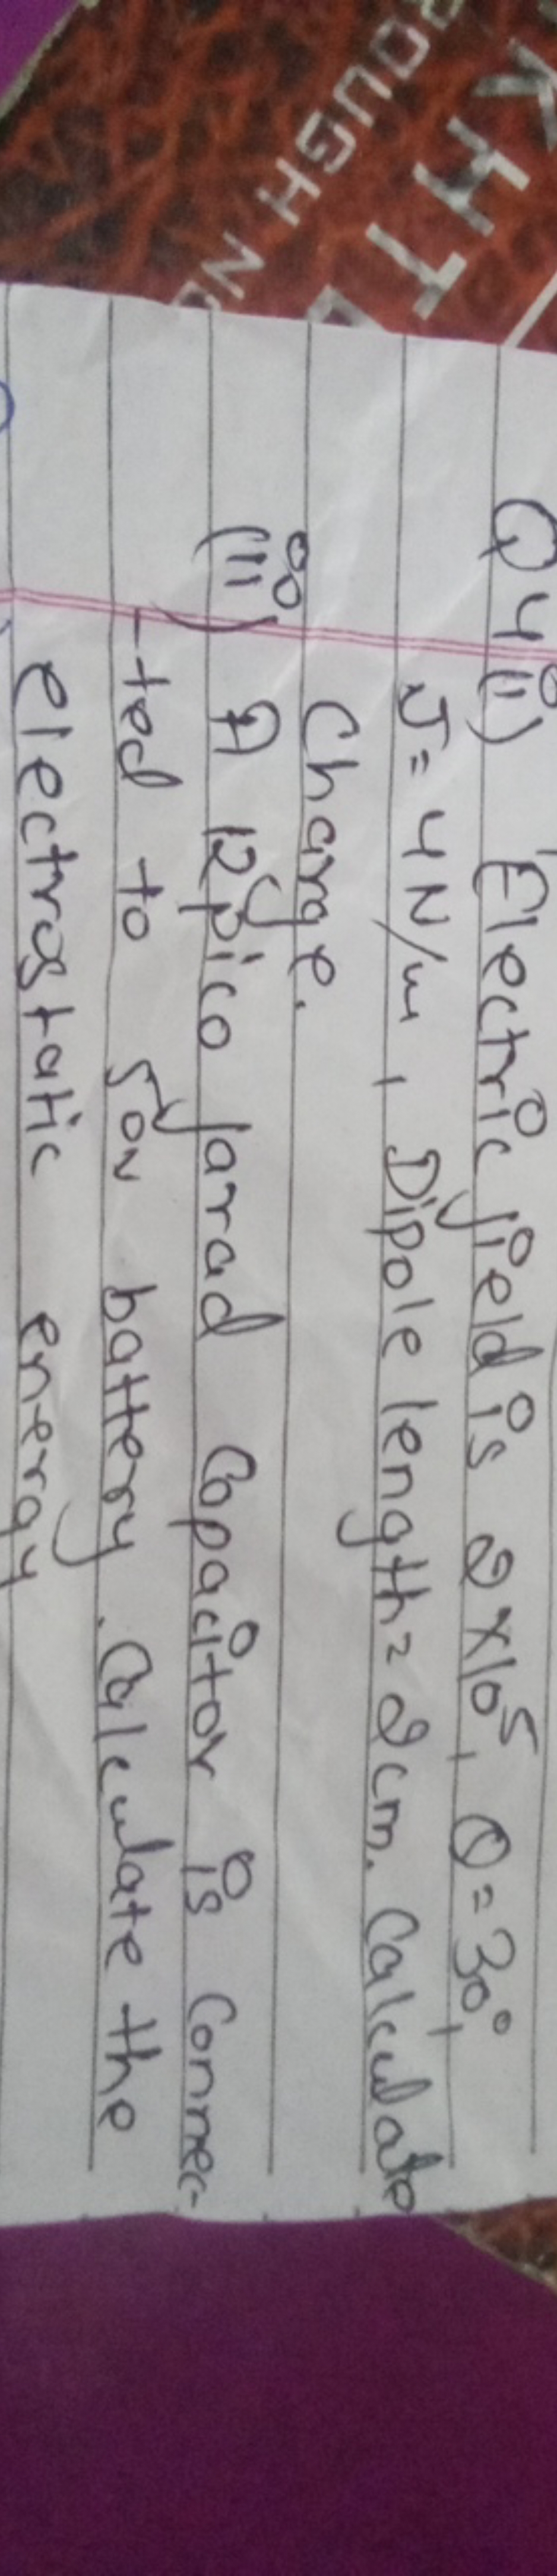 KHT
ROUGH NO
Q4(i) Electric field is 2×10⁵, θ=30°,
J= 4N/m, Dipole length= 2cm. Calculate
Charge.
(ii) A 12 pico farad Capacitor is Connec-
-ted to 50v battery. Calculate the
electrostatic energy